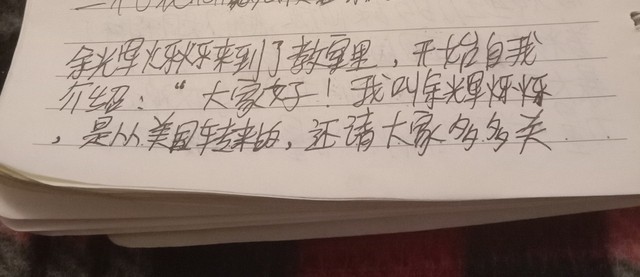 余光辉烁烁来到了教室里，开始自我
介绍：“大家好！我叫余辉烁烁
，是从美国转来的，还请大家多多关